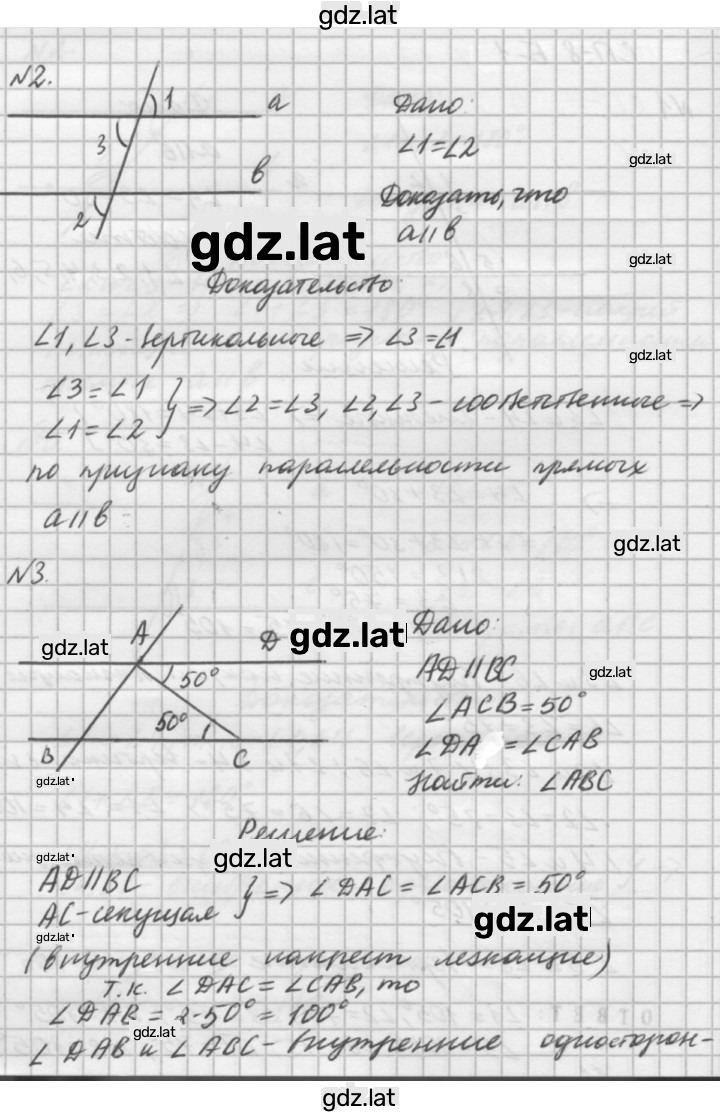 gdz.lat
№2.
1 a
3
b
2
Дано:
∠1=∠2
gdz.lat
Доказать, что
a||b
gdz.lat
gdz.lat
Доказательство:
∠1, ∠3 - вертикальные => ∠3 = ∠1
gdz.lat
∠3 = ∠1
∠1 = ∠2 } => ∠2 = ∠3, ∠2, ∠3 - соответственные =>
по признаку параллельности прямых
a||b
gdz.lat
№3.
A D
gdz.lat gdz.lat
50°
50°
B C
gdz.lat
Дано:
AD||BC
gdz.lat
∠ACB = 50°
∠DA = ∠CAB
Найти: ∠ABC
Решение:
gdz.lat gdz.lat
AD||BC
AC - секущая } => ∠DAC = ∠ACB = 50°
gdz.lat
gdz.lat
(внутренние накрест лежащие)
т.к. ∠DAC = ∠CAB, то
∠DAB = 2·50° = 100°
gdz.lat
∠DAB и ∠ABC - внутренние односторон-
gdz.lat